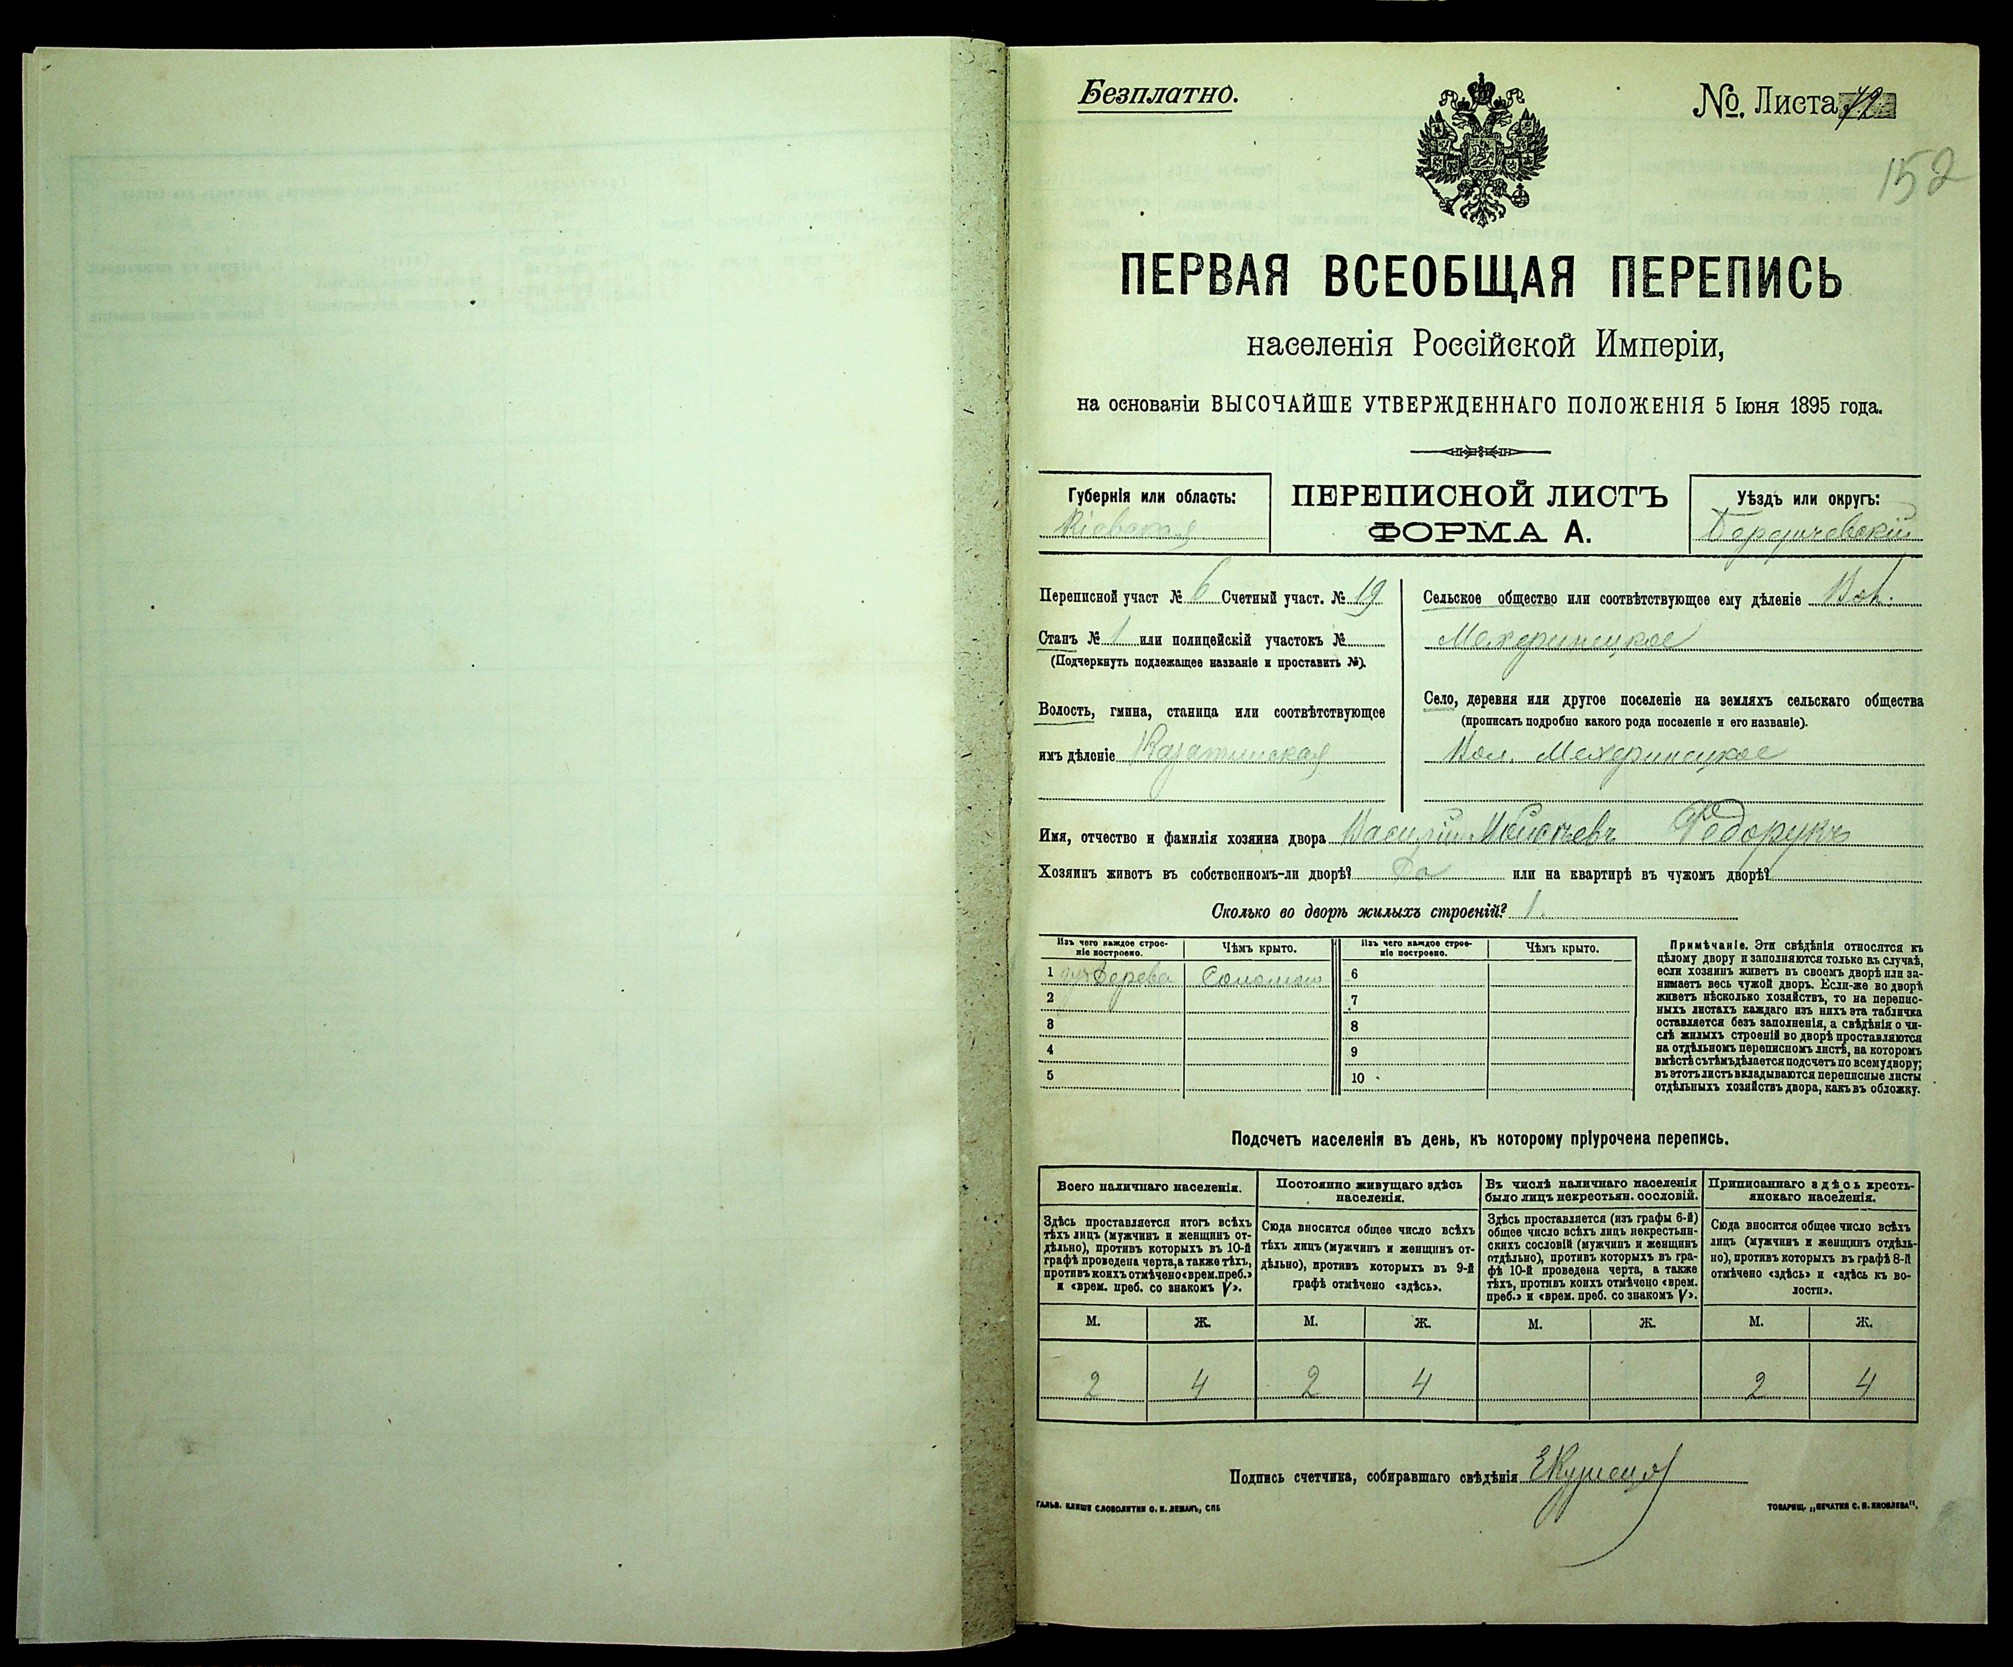 Безплатно.
№. Листа 42
152
ПЕРВАЯ ВСЕОБЩАЯ ПЕРЕПИСЬ
населенія Россійской Имперіи,
на основаніи ВЫСОЧАЙШЕ УТВЕРЖДЕННАГО ПОЛОЖЕНІЯ 5 Іюня 1895 года.
Губернія или область:
Кіевская
ПЕРЕПИСНОЙ ЛИСТЪ
ФОРМА А.
Уѣздъ или округъ:
Бердичевскій
Переписной участ № 6 Счетный участ. № 19
Станъ № 1 или полицейскій участокъ №
(Подчеркнуть подлежащее названіе и проставить №).
Волость, гмина, станица или соотвѣтствующее
имъ дѣленіе Казатинская
Сельское общество или соотвѣтствующее ему дѣленіе Вол.
Махаринецкое
Село, деревня или другое поселеніе на земляхъ сельскаго общества
(прописать подробно какого рода поселеніе и его названіе).
Вол. Махаринецкое
Имя, отчество и фамилія хозяина двора Василій Моисѣевъ Федорукъ
Хозяинъ животъ въ собственномъ-ли дворѣ? Да или на квартирѣ въ чужомъ дворѣ?
Сколько во дворѣ жилыхъ строеній? 1.
Изъ чего каждое строе-
ніе построено.
Чѣмъ крыто.
1 изъ дерева Соломою
2
3
4
5
Изъ чего каждое строе-
ніе построено.
Чѣмъ крыто.
6
7
8
9
10
Примѣчаніе. Эти свѣдѣнія относятся къ
цѣлому двору и заполняются только въ случаѣ,
если хозяинъ живетъ въ своемъ дворѣ или за-
нимаетъ весь чужой дворъ. Если-же во дворѣ
живетъ нѣсколько хозяйствъ, то на перепис-
ныхъ листахъ каждаго изъ нихъ эта табличка
оставляется безъ заполненія, а свѣдѣнія о чи-
слѣ жилыхъ строеній во дворѣ проставляются
на отдѣльномъ переписномъ листѣ, на которомъ
вмѣстѣ съ тѣмъ дѣлается подсчетъ по всему двору;
въ этотъ листъ вкладываются переписные листы
отдѣльныхъ хозяйствъ двора, какъ въ обложку.
Подсчетъ населенія въ день, къ которому пріурочена перепись.
Всего наличнаго населенія.
Здѣсь проставляется итогъ всѣхъ
тѣхъ лицъ (мужчинъ и женщинъ от-
дѣльно), противъ которыхъ въ 10-й
графѣ проведена черта, а также тѣхъ,
противъ коихъ отмѣчено «врем. преб.»
и «врем. преб. со знакомъ V».
Постоянно живущаго здѣсь
населенія.
Сюда вносится общее число всѣхъ
тѣхъ лицъ (мужчинъ и женщинъ от-
дѣльно), противъ которыхъ въ 9-й
графѣ отмѣчено «здѣсь».
Въ числѣ наличнаго населенія
было лицъ некрестьян. сословій.
Здѣсь проставляется (изъ графы 6-й)
общее число всѣхъ лицъ некрестьян-
скихъ сословій (мужчинъ и женщинъ
отдѣльно), противъ которыхъ въ гра-
фѣ 10-й проведена черта, а также
тѣхъ, противъ коихъ отмѣчено «врем.
преб.» и «врем. преб. со знакомъ V».
Приписаннаго здѣсь кресть-
янскаго населенія.
Сюда вносится общее число всѣхъ
лицъ (мужчинъ и женщинъ отдѣль-
но), противъ которыхъ въ графѣ 8-й
отмѣчено «здѣсь» и «здѣсь къ во-
лости».
М. Ж. М. Ж. М. Ж. М. Ж.
2 4 2 4 2 4
Подпись счетчика, собиравшаго свѣдѣнія
ГАЛЬВ. КЛИШЕ СЛОВОЛИТНИ О. И. ЛЕМАНЪ, СПБ
ТОВАРИЩ. „ПЕЧАТНЯ С. П. ЯКОВЛЕВА".